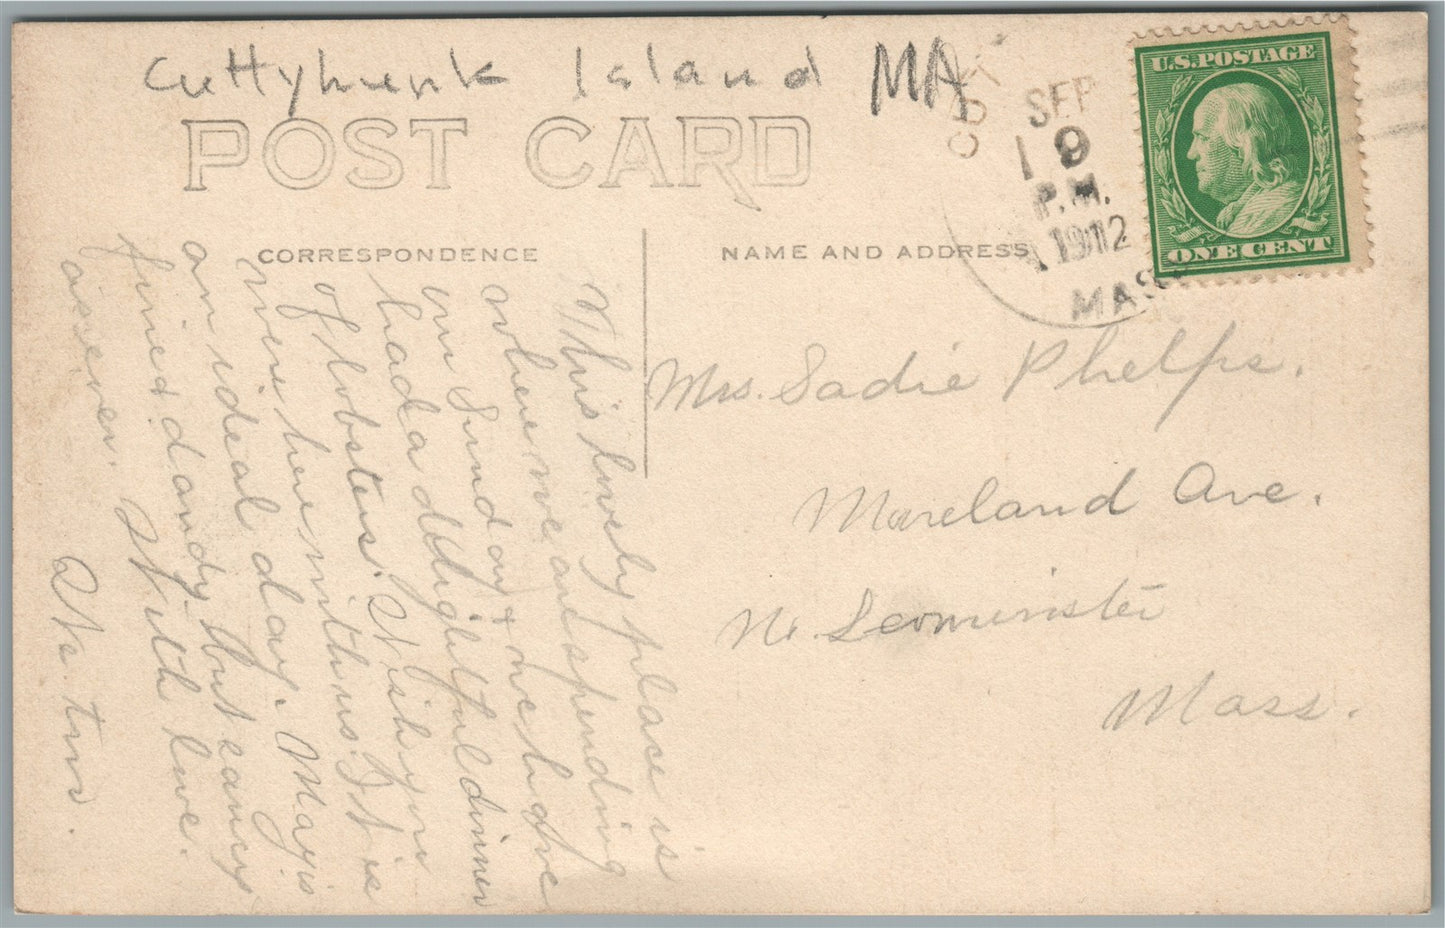 Cuttyhunk Island MA
POST CARD
CORRESPONDENCE
NAME AND ADDRESS
SEP
9
P.M.
1912
MASS
U.S. POSTAGE
ONE CENT
Mrs. Sadie Phelps.
Moreland Ave.
No. Leominster
Mass.
This lovely place is
where we are spending
our Sunday & we have
had a delightful dinner
of lobsters. Wish you
were here with us. It is
an ideal day. May is
fine & dandy but
as ever. With love.